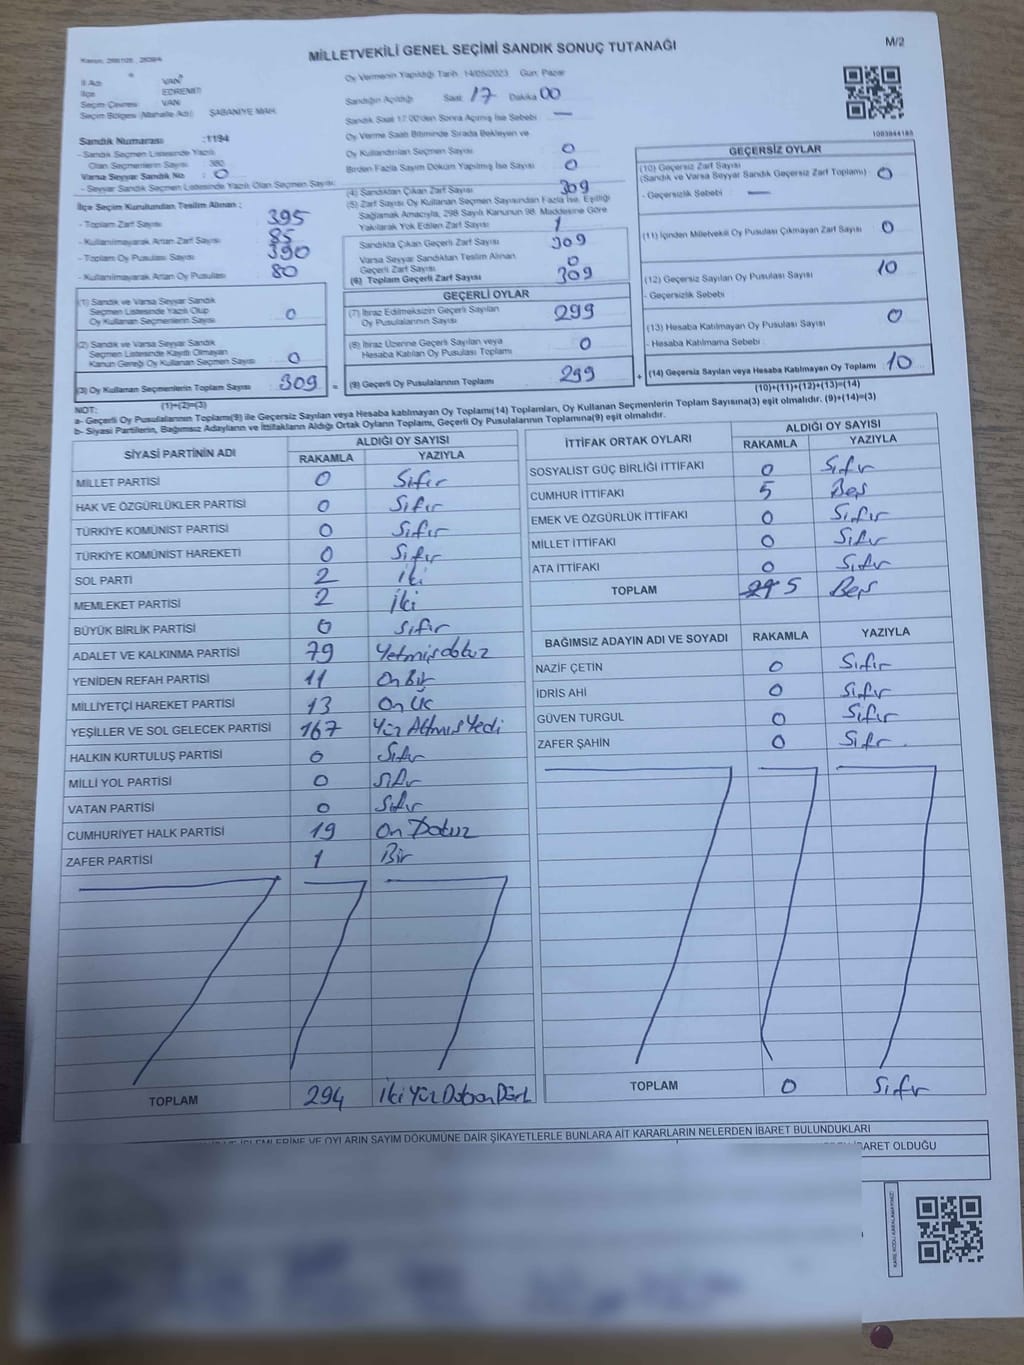 MİLLETVEKİLİ GENEL SEÇİMİ SANDIK SONUÇ TUTANAĞI
M/2
İl Adı VAN
İlçe EDREMİT
Seçim Çevresi VAN
Seçim Bölgesi (Mahalle Adı) ŞABANİYE MAH.
Oy Vermenin Yapıldığı Tarih 14/05/2023 Gün: Pazar
Sandığın Açıldığı Saat 17 Dakika 00
Sandık Saat 17:00'den Sonra Açılmış İse Sebebi —
Oy Verme Saati Bitiminde Sırada Bekleyen ve
Oy Kullandırılan Seçmen Sayısı 0
Birden Fazla Sayım Döküm Yapılmış İse Sayısı 0
Sandık Numarası :1194
- Sandık Seçmen Listesinde Yazılı
Olan Seçmenlerin Sayısı 380
Varsa Seyyar Sandık No : 0
- Seyyar Sandık Seçmen Listesinde Yazılı Olan Seçmen Sayısı:
İlçe Seçim Kurulundan Teslim Alınan ;
- Toplam Zarf Sayısı 395
- Kullanılmayarak Artan Zarf Sayısı 85
- Toplam Oy Pusulası Sayısı 390
- Kullanılmayarak Artan Oy Pusulası 80
(1) Sandık ve Varsa Seyyar Sandık
Seçmen Listesinde Yazılı Olup
Oy Kullanan Seçmenlerin Sayısı 0
(2) Sandık ve Varsa Seyyar Sandık
Seçmen Listesinde Kayıtlı Olmayan
Kanun Gereği Oy Kullanan Seçmen Sayısı 0
(3) Oy Kullanan Seçmenlerin Toplam Sayısı 309
(1)+(2)=(3)
(4) Sandıktan Çıkan Zarf Sayısı 309
(5) Zarf Sayısı Oy Kullanan Seçmen Sayısından Fazla İse, Eşitliği
Sağlamak Amacıyla, 298 Sayılı Kanunun 98. Maddesine Göre
Yakılarak Yok Edilen Zarf Sayısı 1
Sandıkta Çıkan Geçerli Zarf Sayısı 309
Varsa Seyyar Sandıktan Teslim Alınan
Geçerli Zarf Sayısı 0
(6) Toplam Geçerli Zarf Sayısı 309
GEÇERLİ OYLAR
(7) İtiraz Edilmeksizin Geçerli Sayılan
Oy Pusulalarının Sayısı 299
(8) İtiraz Üzerine Geçerli Sayılan veya
Hesaba Katılan Oy Pusulası Toplamı 0
= (9) Geçerli Oy Pusulalarının Toplamı 299
1083844185
GEÇERSİZ OYLAR
(10) Geçersiz Zarf Sayısı
(Sandık ve Varsa Seyyar Sandık Geçersiz Zarf Toplamı) 0
- Geçersizlik Sebebi —
(11) İçinden Milletvekili Oy Pusulası Çıkmayan Zarf Sayısı 0
(12) Geçersiz Sayılan Oy Pusulası Sayısı 10
- Geçersizlik Sebebi
(13) Hesaba Katılmayan Oy Pusulası Sayısı 0
- Hesaba Katılmama Sebebi
+ (14) Geçersiz Sayılan veya Hesaba Katılmayan Oy Toplamı 10
(10)+(11)+(12)+(13)=(14)
NOT:
a- Geçerli Oy Pusulalarının Toplamı(9) ile Geçersiz Sayılan veya Hesaba katılmayan Oy Toplamı(14) Toplamları, Oy Kullanan Seçmenlerin Toplam Sayısına(3) eşit olmalıdır. (9)+(14)=(3)
b- Siyasi Partilerin, Bağımsız Adayların ve İttifakların Aldığı Ortak Oyların Toplamı, Geçerli Oy Pusulalarının Toplamına(9) eşit olmalıdır.
SİYASİ PARTİNİN ADI ALDIĞI OY SAYISI
RAKAMLA YAZIYLA
MİLLET PARTİSİ 0 Sıfır
HAK VE ÖZGÜRLÜKLER PARTİSİ 0 Sıfır
TÜRKİYE KOMÜNİST PARTİSİ 0 Sıfır
TÜRKİYE KOMÜNİST HAREKETİ 0 Sıfır
SOL PARTİ 2 İki
MEMLEKET PARTİSİ 2 İki
BÜYÜK BİRLİK PARTİSİ 0 Sıfır
ADALET VE KALKINMA PARTİSİ 79 Yetmişdokuz
YENİDEN REFAH PARTİSİ 11 On Bir
MİLLİYETÇİ HAREKET PARTİSİ 13 On Üç
YEŞİLLER VE SOL GELECEK PARTİSİ 167 Yüz Altmış Yedi
HALKIN KURTULUŞ PARTİSİ 0 Sıfır
MİLLİ YOL PARTİSİ 0 Sıfır
VATAN PARTİSİ 0 Sıfır
CUMHURİYET HALK PARTİSİ 19 On Dokuz
ZAFER PARTİSİ 1 Bir
TOPLAM 294 İki Yüz Doksan Dört
İTTİFAK ORTAK OYLARI ALDIĞI OY SAYISI
RAKAMLA YAZIYLA
SOSYALİST GÜÇ BİRLİĞİ İTTİFAKI 0 Sıfır
CUMHUR İTTİFAKI 5 Beş
EMEK VE ÖZGÜRLÜK İTTİFAKI 0 Sıfır
MİLLET İTTİFAKI 0 Sıfır
ATA İTTİFAKI 0 Sıfır
TOPLAM 5 Beş
BAĞIMSIZ ADAYIN ADI VE SOYADI RAKAMLA YAZIYLA
NAZİF ÇETİN 0 Sıfır
İDRİS AHİ 0 Sıfır
GÜVEN TURGUL 0 Sıfır
ZAFER ŞAHİN 0 Sıfır
TOPLAM 0 Sıfır
İŞLEMLERİNE VE OYLARIN SAYIM DÖKÜMÜNE DAİR ŞİKAYETLERLE BUNLARA AİT KARARLARIN NELERDEN İBARET BULUNDUKLARI
İBARET OLDUĞU